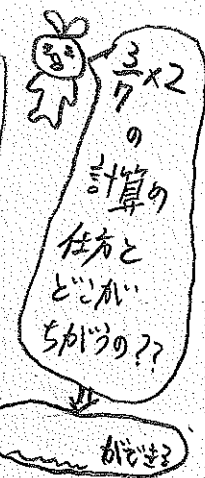 3/7×2
の
計算の
仕方と
どこが
ちがうの??
ができる